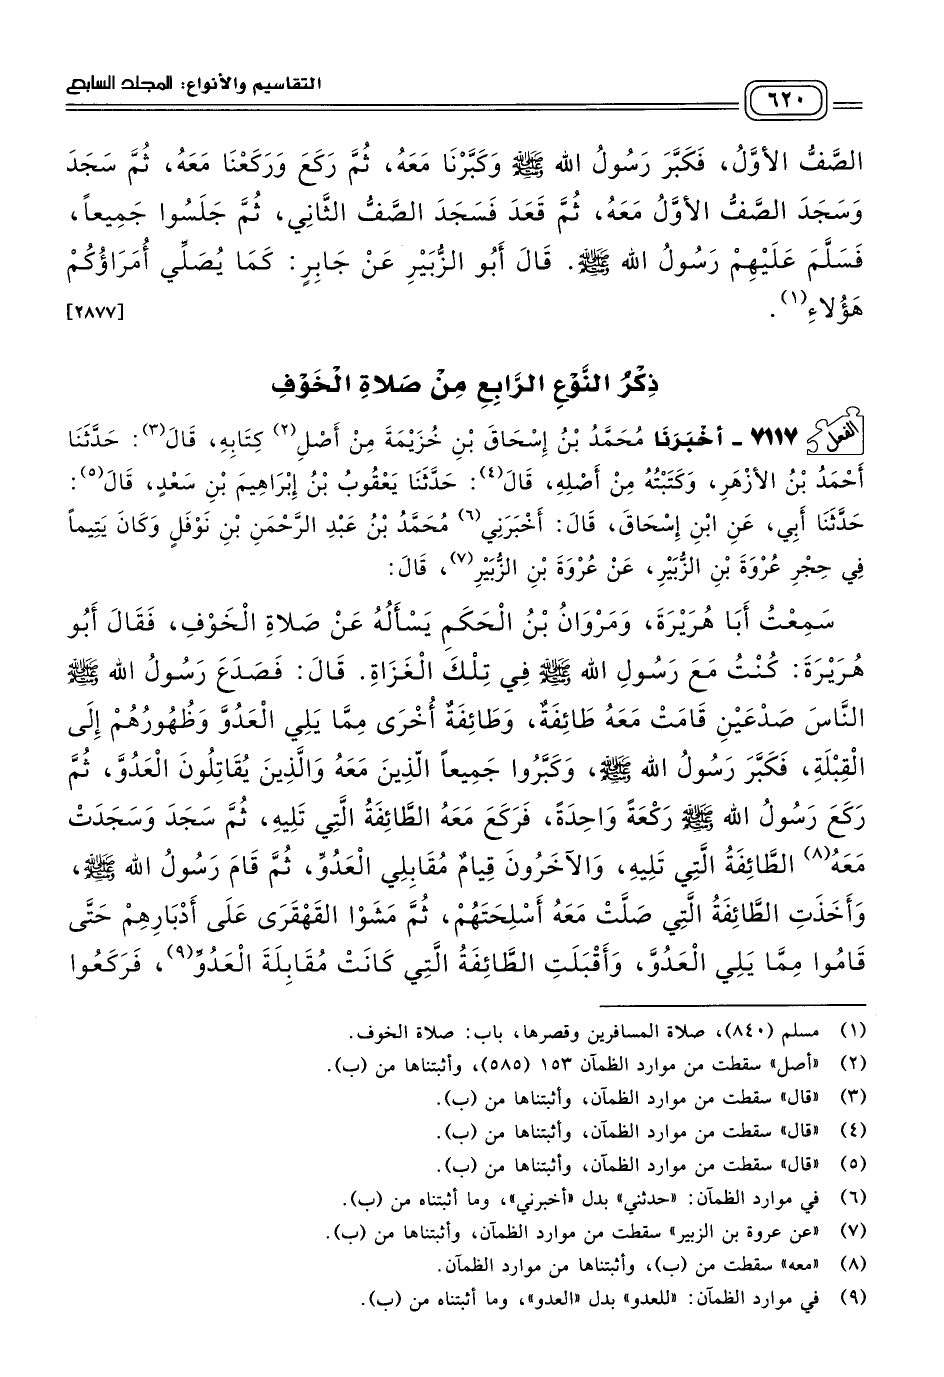 التقاسيم والأنواع: المجلد السابع
٦٢٠
الصَّفُّ الأوَّلُ، فَكَبَّرَ رَسُولُ الله ﷺ وَكَبَّرْنَا مَعَهُ، ثُمَّ رَكَعَ وَرَكَعْنَا مَعَهُ، ثُمَّ سَجَدَ
وَسَجَدَ الصَّفُّ الأوَّلُ مَعَهُ، ثُمَّ قَعَدَ فَسَجَدَ الصَّفُّ الثَّانِي، ثُمَّ جَلَسُوا جَمِيعاً،
فَسَلَّمَ عَلَيْهِمْ رَسُولُ الله ﷺ. قَالَ أَبُو الزُّبَيْرِ عَنْ جَابِرٍ: كَمَا يُصَلِّي أُمَرَاؤُكُمْ
هَؤُلاءِ(١). [٢٨٧٧]
ذِكْرُ النَّوْعِ الرَّابِعِ مِنْ صَلاةِ الْخَوْفِ
الفعل ٧١١٧ - أخْبَرَنَا مُحَمَّدُ بْنُ إِسْحَاقَ بْنِ خُزَيْمَةَ مِنْ أَصْلِ(٢) كِتَابِهِ، قَالَ(٣): حَدَّثَنَا
أَحْمَدُ بْنُ الأزْهَرِ، وَكَتَبْتُهُ مِنْ أَصْلِهِ، قَالَ(٤): حَدَّثَنَا يَعْقُوبُ بْنُ إِبْرَاهِيمَ بْنِ سَعْدٍ، قَالَ(٥):
حَدَّثَنَا أَبِي، عَنِ ابْنِ إِسْحَاقَ، قَالَ: أَخْبَرَنِي(٦) مُحَمَّدُ بْنُ عَبْدِ الرَّحْمَنِ بْنِ نَوْفَلٍ وَكَانَ يَتِيماً
فِي حِجْرِ عُرْوَةَ بْنِ الزُّبَيْرِ، عَنْ عُرْوَةَ بْنِ الزُّبَيْرِ(٧)، قَالَ:
سَمِعْتُ أَبَا هُرَيْرَةَ، وَمَرْوَانُ بْنُ الْحَكَمِ يَسْأَلُهُ عَنْ صَلاةِ الْخَوْفِ، فَقَالَ أَبُو
هُرَيْرَةَ: كُنْتُ مَعَ رَسُولِ الله ﷺ فِي تِلْكَ الْغَزَاةِ. قَالَ: فَصَدَعَ رَسُولُ الله ﷺ
النَّاسَ صَدْعَيْنِ قَامَتْ مَعَهُ طَائِفَةٌ، وَطَائِفَةٌ أُخْرَى مِمَّا يَلِي الْعَدُوَّ وَظُهُورُهُمْ إِلَى
الْقِبْلَةِ، فَكَبَّرَ رَسُولُ الله ﷺ، وَكَبَّرُوا جَمِيعاً الَّذِينَ مَعَهُ وَالَّذِينَ يُقَاتِلُونَ الْعَدُوَّ، ثُمَّ
رَكَعَ رَسُولُ الله ﷺ رَكْعَةً وَاحِدَةً، فَرَكَعَ مَعَهُ الطَّائِفَةُ الَّتِي تَلِيهِ، ثُمَّ سَجَدَ وَسَجَدَتْ
مَعَهُ(٨) الطَّائِفَةُ الَّتِي تَلِيهِ، وَالآخَرُونَ قِيَامٌ مُقَابِلِي الْعَدُوِّ، ثُمَّ قَامَ رَسُولُ الله ﷺ،
وَأَخَذَتِ الطَّائِفَةُ الَّتِي صَلَّتْ مَعَهُ أَسْلِحَتَهُمْ، ثُمَّ مَشَوُا القَهْقَرَى عَلَى أَدْبَارِهِمْ حَتَّى
قَامُوا مِمَّا يَلِي الْعَدُوَّ، وَأَقْبَلَتِ الطَّائِفَةُ الَّتِي كَانَتْ مُقَابِلَةَ الْعَدُوِّ(٩)، فَرَكَعُوا
(١) مسلم (٨٤٠)، صلاة المسافرين وقصرها، باب: صلاة الخوف.
(٢) «أصل» سقطت من موارد الظمآن ١٥٣ (٥٨٥)، وأثبتناها من (ب).
(٣) «قال» سقطت من موارد الظمآن، وأثبتناها من (ب).
(٤) «قال» سقطت من موارد الظمآن، وأثبتناها من (ب).
(٥) «قال» سقطت من موارد الظمآن، وأثبتناها من (ب).
(٦) في موارد الظمآن: «حدثني» بدل «أخبرني»، وما أثبتناه من (ب).
(٧) «عن عروة بن الزبير» سقطت من موارد الظمآن، وأثبتناها من (ب).
(٨) «معه» سقطت من (ب)، وأثبتناها من موارد الظمآن.
(٩) في موارد الظمآن: «للعدو» بدل «العدو»، وما أثبتناه من (ب).